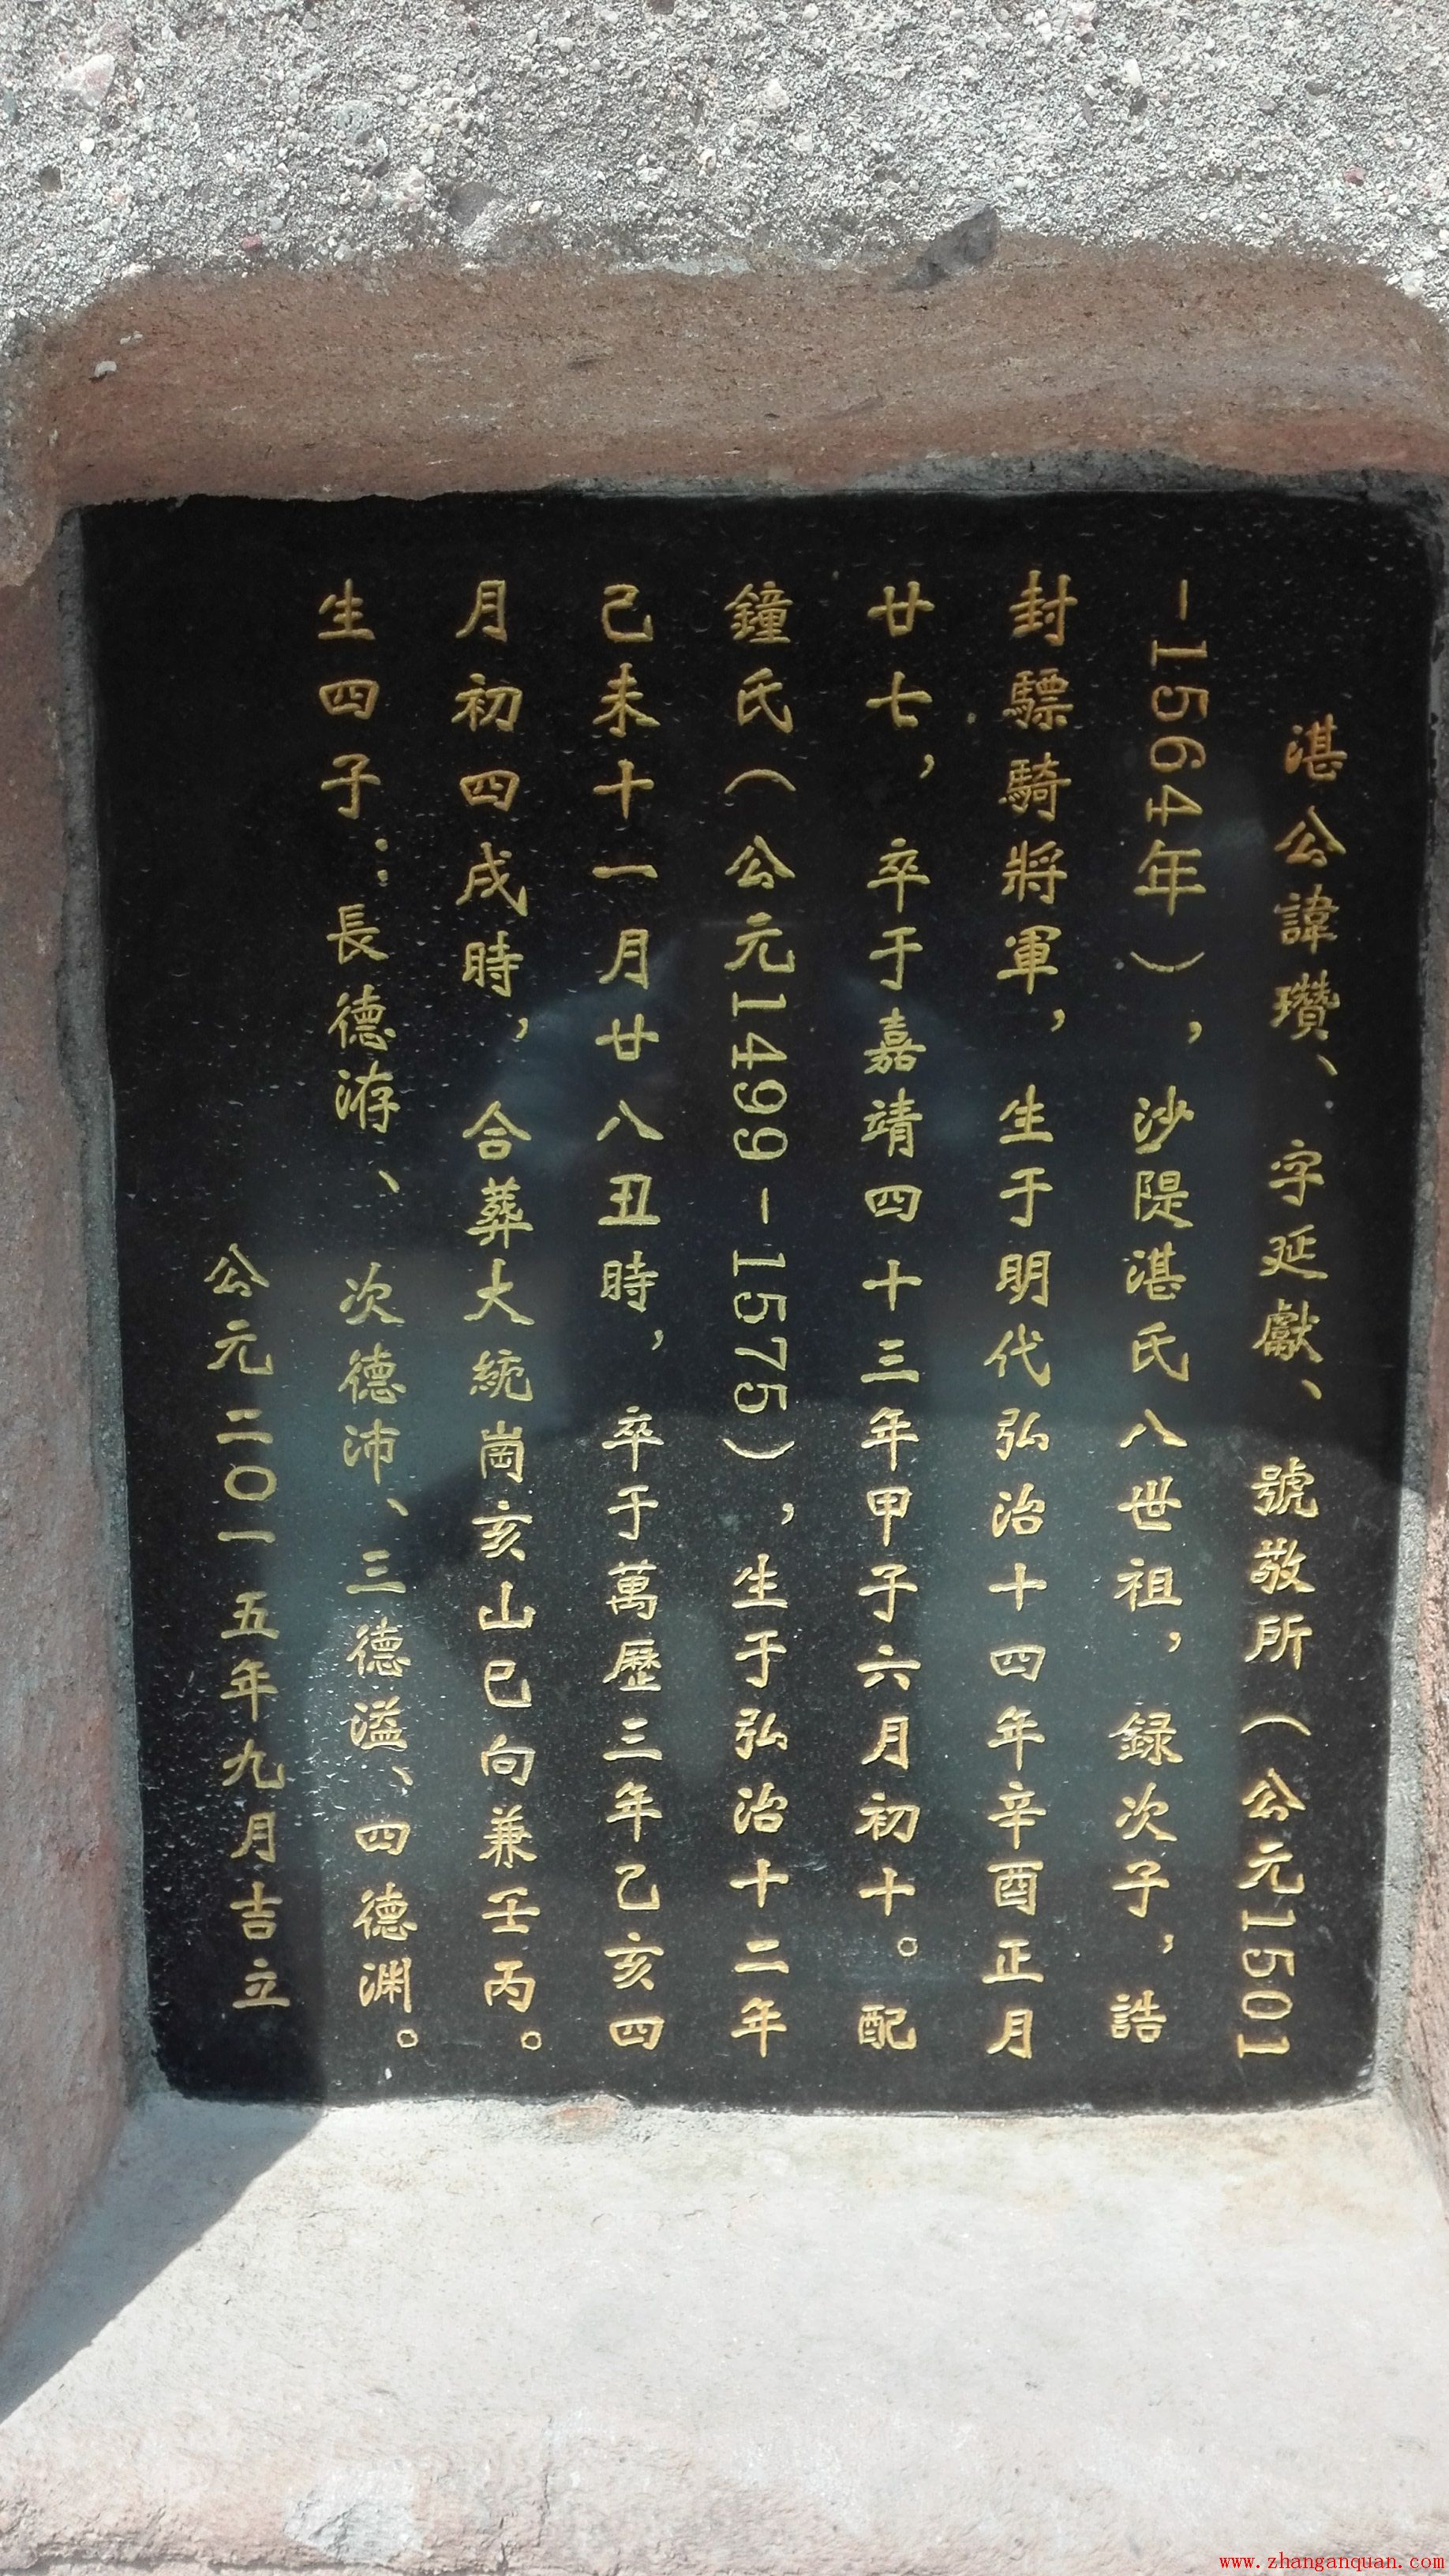 湛公諱瓚、字延獻、號敬所（公元1501
-1564年），沙隄湛氏八世祖，録次子，誥
封驃騎將軍，生于明代弘治十四年辛酉正月
廿七，卒于嘉靖四十三年甲子六月初十。配
鐘氏（公元1499-1575），生于弘治十二年
己未十一月廿八丑時，卒于萬歷三年乙亥四
月初四戌時，合葬大統崗亥山巳向兼壬丙。
生四子：長德洊、次德沛、三德溢、四德渊。
公元二〇一五年九月吉立
www.zhanganquan.com